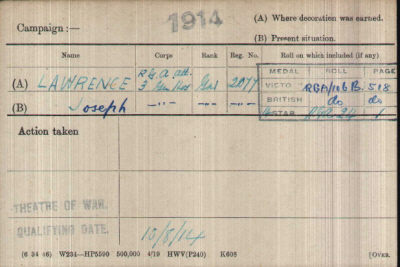 1914
Campaign :—
(A) Where decoration was earned.
(B) Present situation.
Name Corps Rank Reg. No. Roll on which included (if any)
MEDAL ROLL PAGE
(A) LAWRENCE R.G.A. att. 3
VICTO RGA/106B. 518
(B) Joseph —"— —"— "
BRITISH do do
STAR RGA 24 1
Action taken
THEATRE OF WAR.
QUALIFYING DATE. 10/8/14
(6 34 46) W234—HP5590 500,000 4/19 HWV(P240) K608 [OVER.